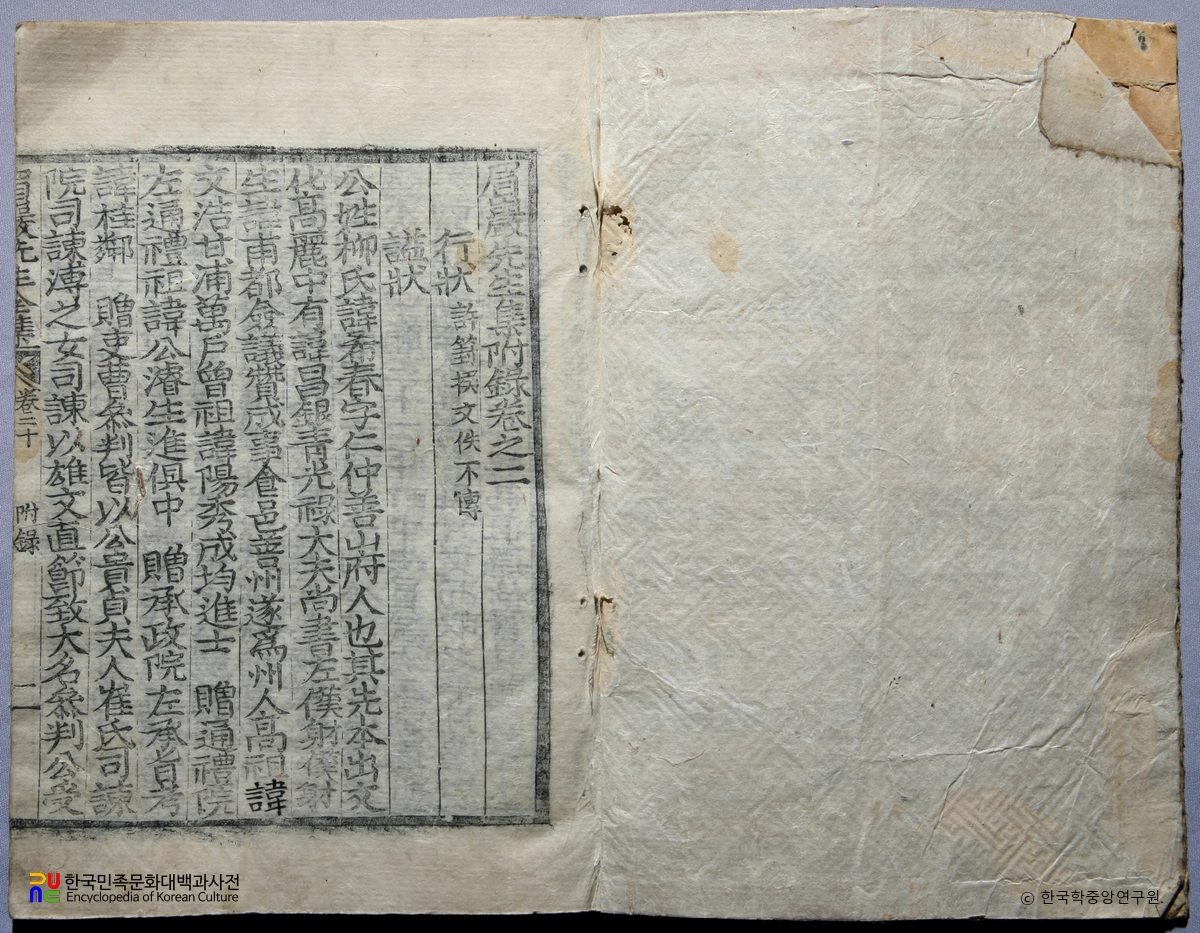 眉巖先生集附錄卷之二
行狀 許篈撰文佚不傳
諡狀
公姓柳氏諱希春字仁仲善山府人也其先本出文
化高麗中有諱昌銀青光祿大夫尚書左僕射僕射
生諱甫都僉議贊成事食邑善州遂爲州人高祖諱
文浩甘浦萬戶曾祖諱陽秀成均進士 贈通禮院
左通禮祖諱公濬生進俱中 贈承政院左承旨考
諱桂鄰 贈吏曹叅判皆以公貴貞夫人崔氏司諫
院司諫溥之女司諫以雄文直節致大名叅判公受
眉巖先生全集 卷二十 附錄 一
한국민족문화대백과사전
Encyclopedia of Korean Culture
ⓒ 한국학중앙연구원